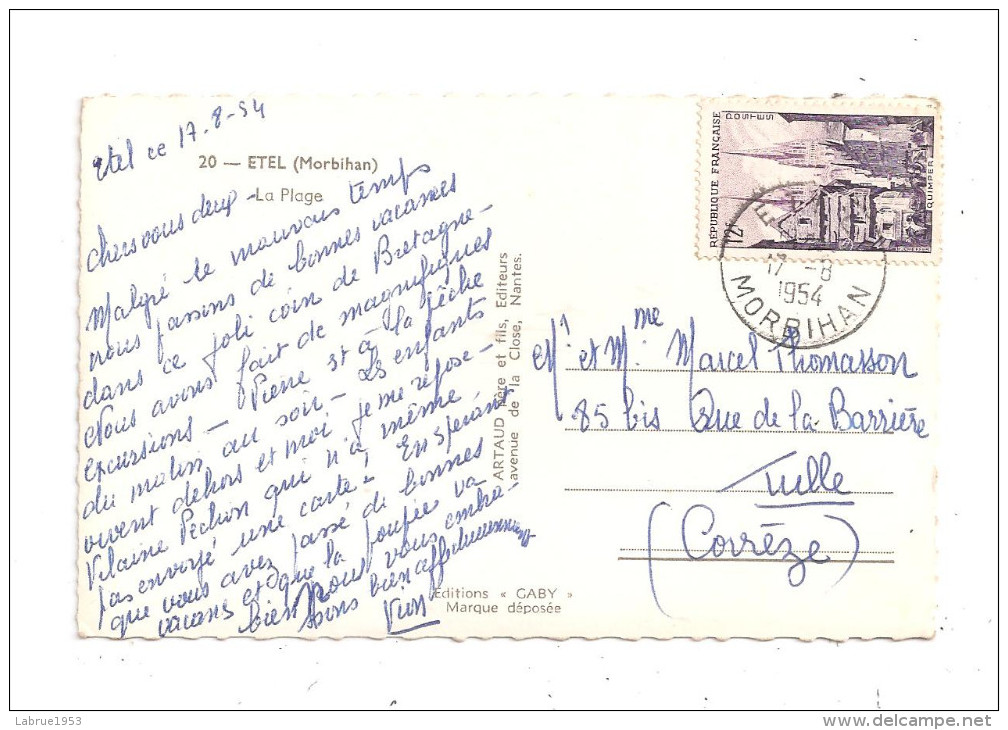 Etel ce 17-8-54
20 — ETEL (Morbihan)
La Plage
Chers vous deux -
Malgré le mauvais temps
nous passons de bonnes vacances
dans ce joli coin de Bretagne -
Nous avons fait de magnifiques
excursions - Pierre st à la pêche
du matin au soir - Les enfants
vivent dehors et moi je me repose -
Vilaine Pechon qui n'a même
pas envoyé une carte! En espérant
que vous avez passé de bonnes
vacances et que la poupée va
bien nous vous embra-
ssons bien affectueusement
ARTAUD père et fils, Editeurs
avenue de la Close, Nantes.
Editions « GABY »
Marque déposée
RÉPUBLIQUE FRANÇAISE
POSTES
12f
QUIMPER
17 -8
1954
MORBIHAN
Mr et Mme Marcel Thomasson
85 bis Rue de la Barrière
Tulle
(Corrèze)
Labrue1953
www.delcampe.net